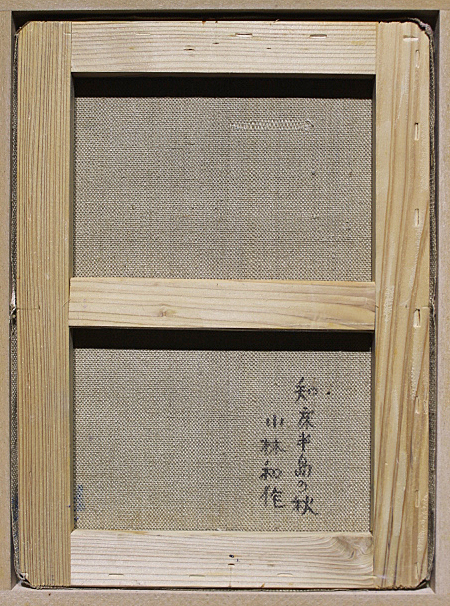 知床半島の秋
小林和作